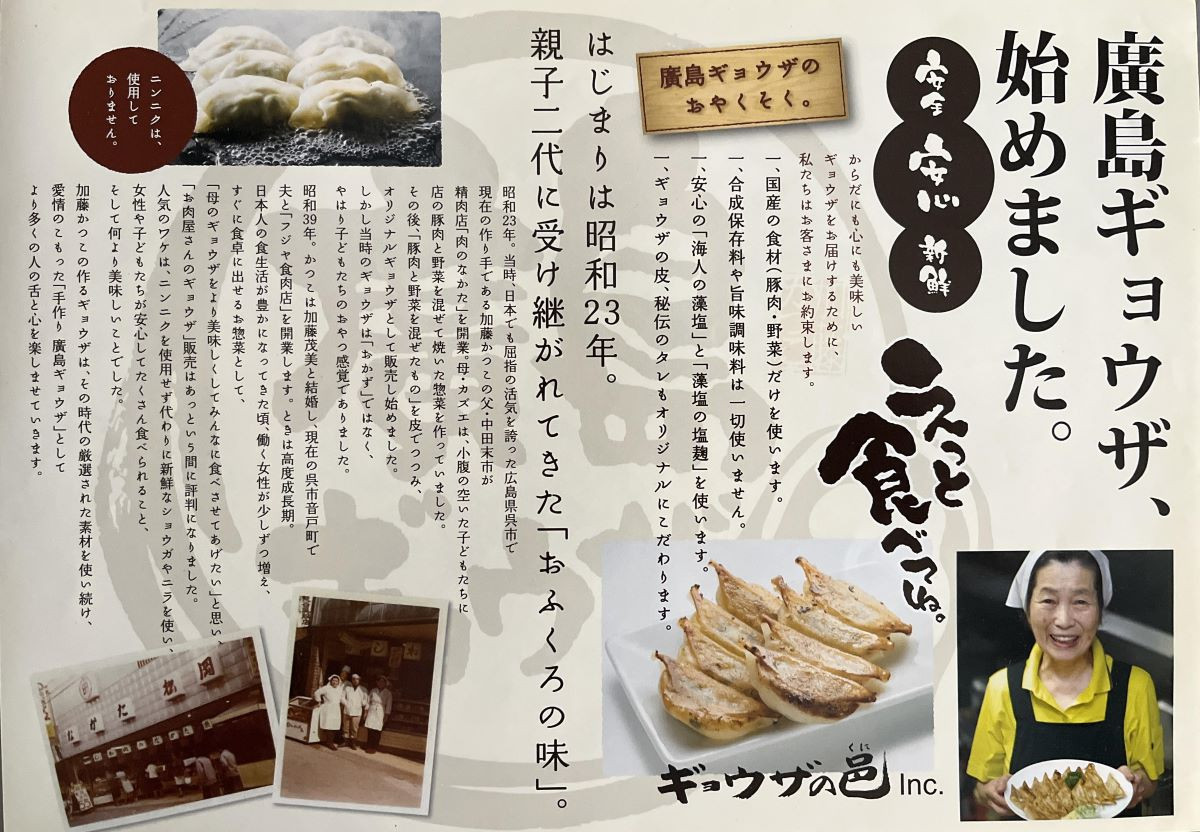 廣島ギョウザ、
始めました。
安全
安心
新鮮
えっと
食べてね。
廣島ギョウザの
おやくそく。
からだにも心にも美味しい
ギョウザをお届けするために、
私たちはお客さまにお約束します。
一、国産の食材（豚肉・野菜）だけを使います。
一、合成保存料や旨味調味料は一切使いません。
一、安心の「海人の藻塩」と「藻塩の塩麹」を使います。
一、ギョウザの皮、秘伝のタレもオリジナルにこだわります。
はじまりは昭和23年。
親子二代に受け継がれてきた「おふくろの味」。
昭和23年。当時、日本でも屈指の活気を誇った広島県呉市で
現在の作り手である加藤かつこの父・中田末市が
精肉店「肉のなかた」を開業。母・カズエは、小腹の空いた子どもたちに
店の豚肉と野菜を混ぜて焼いた惣菜を作っていました。
その後、「豚肉と野菜を混ぜたもの」を皮でつつみ、
オリジナルギョウザとして販売し始めました。
しかし当時のギョウザは「おかず」ではなく、
やはり子どもたちのおやつ感覚でありました。
昭和39年。かつこは加藤茂美と結婚し、現在の呉市音戸町で
夫と「フジヤ食肉店」を開業します。ときは高度成長期。
日本人の食生活が豊かになってきた頃、働く女性が少しずつ増え、
すぐに食卓に出せるお惣菜として、
「母のギョウザをより美味しくしてみんなに食べさせてあげたい」と思い、
「お肉屋さんのギョウザ」販売はあっという間に評判になりました。
人気のワケは、ニンニクを使用せず代わりに新鮮なショウガやニラを使い、
女性や子どもたちが安心してたくさん食べられること、
そして何より美味しいことでした。
加藤かつこの作るギョウザは、その時代の厳選された素材を使い続け、
愛情のこもった「手作り 廣島ギョウザ」として
より多くの人の舌と心を楽しませていきます。
ニンニクは、
使用して
おりません。
肉のなかた
ギョウザの邑 Inc.
くに